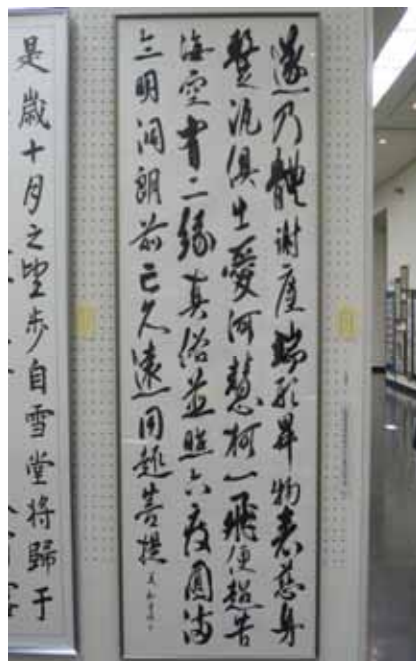 遂乃體謝塵端形昇物表慈身
蹔汎俱生愛河慧柯一飛便超苦
海空有二緣真俗並照六度圓滿
三明洞朗前亡久遠同趣菩提
是歲十月之望步自雪堂將歸于